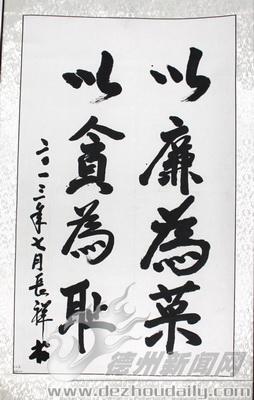 以廉為荣
以貪為耻
二〇一三年七月長祥书
德州新闻网
www.dezhoudaily.com